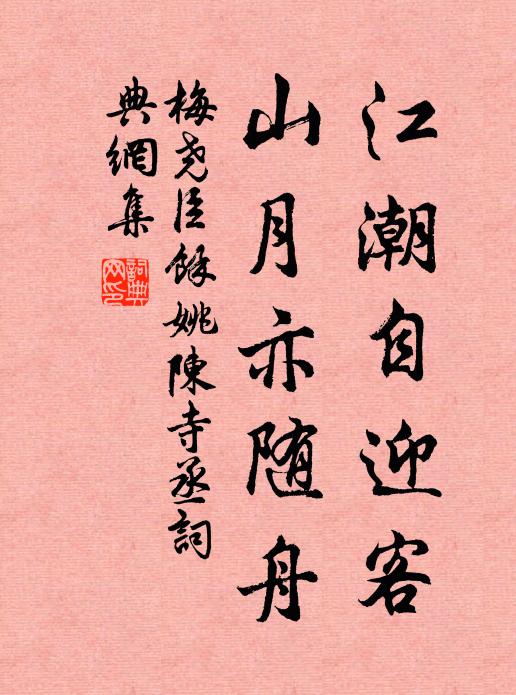 江潮自迎客
山月亦随舟
梅尧臣馀姚陳寺丞詞
典網集
詞典
网印